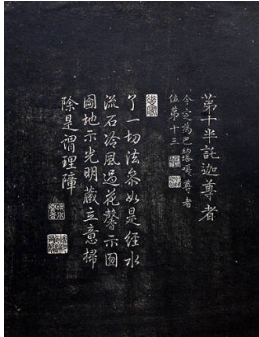 第十半託迦尊者
今定為巴納塔嘎尊者
位第十三
了一切法衆如是經水
流石冷風過花馨示圓
圓地示光明藏立意掃
除是謂理障